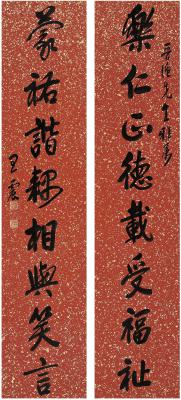 樂仁正德載受福祉
先生雅
蒙祐諧耦相與笑言
王震